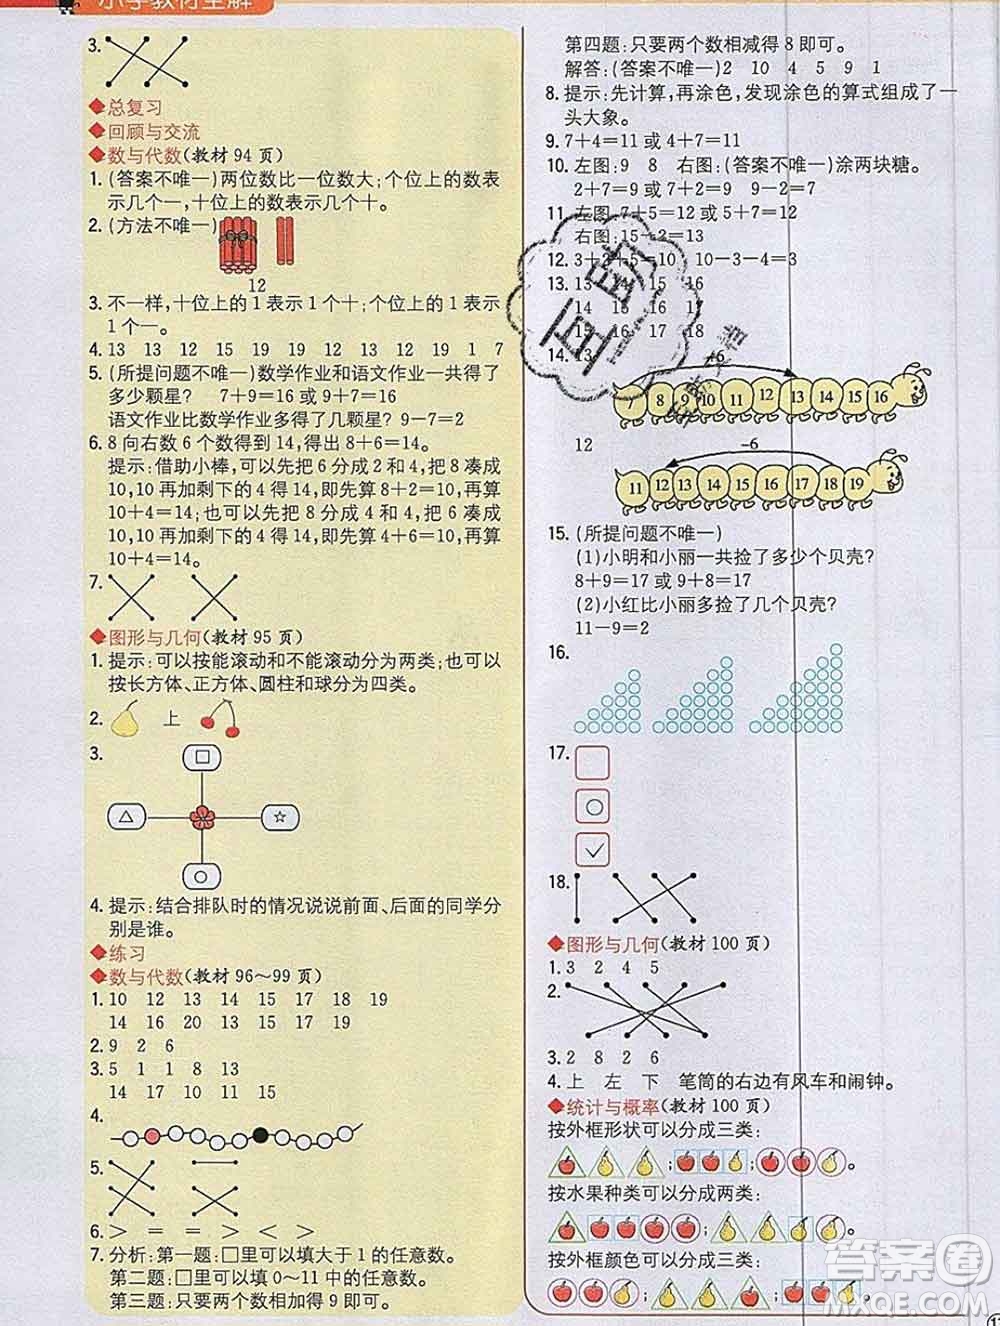 小学教材全解
3.
◆总复习
◆回顾与交流
◆数与代数(教材 94 页)
1. (答案不唯一)两位数比一位数大;个位上的数表
示几个一,十位上的数表示几个十。
2. (方法不唯一)
12
3. 不一样,十位上的 1 表示 1 个十;个位上的 1 表示
1 个一。
4. 13 13 12 15 19 19 12 13 12 19 1 7
5. (所提问题不唯一)数学作业和语文作业一共得了
多少颗星? 7+9=16 或 9+7=16
语文作业比数学作业多得了几颗星? 9-7=2
6. 8 向右数 6 个数得到 14,得出 8+6=14。
提示:借助小棒,可以先把 6 分成 2 和 4,把 8 凑成
10,10 再加剩下的 4 得 14,即先算 8+2=10,再算
10+4=14;也可以先把 8 分成 4 和 4,把 6 凑成
10,10 再加剩下的 4 得 14,即先算 4+6=10,再算
10+4=14。
7.
◆图形与几何(教材 95 页)
1. 提示:可以按能滚动和不能滚动分为两类;也可以
按长方体、正方体、圆柱和球分为四类。
2. 上
3.
4. 提示:结合排队时的情况说说前面、后面的同学分
别是谁。
◆练习
◆数与代数(教材 96~99 页)
1. 10 12 13 14 15 17 18 19
14 16 20 13 15 17 19
2. 9 2 6
3. 5 1 1 8 13
14 17 10 11 15
4.
5.
6. > = = > < >
7. 分析:第一题:□里可以填大于 1 的任意数。
第二题:□里可以填 0~11 中的任意数。
第三题:只要两个数相加得 9 即可。
第四题:只要两个数相减得 8 即可。
解答:(答案不唯一)2 10 4 5 9 1
8. 提示:先计算,再涂色,发现涂色的算式组成了一
头大象。
9. 7+4=11 或 4+7=11
10. 左图:9 8 右图:(答案不唯一)涂两块糖。
2+7=9 或 7+2=9 9-2=7
11. 左图:7+5=12 或 5+7=12
右图:15-2=13
12. 3+2+5=10 10-3-4=3
13. 13 14 15 16
14 15 16 17
15 16 17 18
14. 13
+6
7 8 9 10 11 12 13 14 15 16
12
-6
11 12 13 14 15 16 17 18 19
15. (所提问题不唯一)
(1)小明和小丽一共捡了多少个贝壳?
8+9=17 或 9+8=17
(2)小红比小丽多捡了几个贝壳?
11-9=2
16.
17.
18.
◆图形与几何(教材 100 页)
1. 3 2 4 5
2.
3. 2 8 2 6
4. 上 左 下 笔筒的右边有风车和闹钟。
◆统计与概率(教材 100 页)
按外框形状可以分成三类:
; ; 。
按水果种类可以分成两类:
; 。
按外框颜色可以分成三类:
; ;
答案圈
MXQE.COM